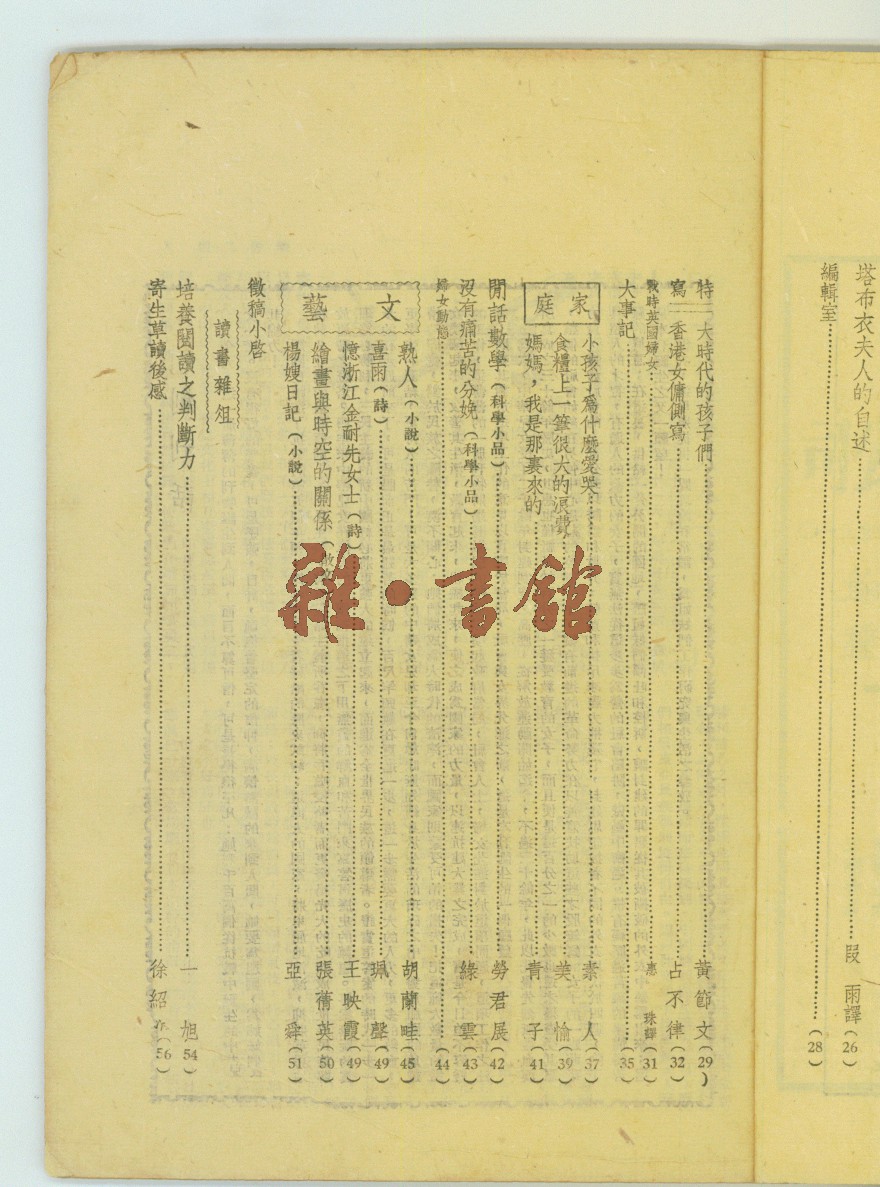 塔布衣夫人的自述 段雨譯(26)
編輯室 (28)
特寫
大時代的孩子們 黃節文(29)
香港女傭側寫 占不律(32)
戰時英國婦女 惠珠譯(31)
大事記 (35)
家庭
小孩子為什麼愛哭 素人(37)
食糧上一筆很大的浪費 美愉(39)
媽媽,我是那裏來的 青子(41)
閒話數學(科學小品) 勞君展(42)
沒有痛苦的分娩(科學小品) 綠雲(43)
婦女動態 (44)
文藝
熟人(小說) 胡蘭畦(45)
喜雨(詩) 珮聲(49)
憶浙江金耐先女士(詩) 王映霞(49)
繪畫與時空的關係 張蒨英(50)
楊嫂日記(小說) 亞舜(51)
徵稿小啓
讀書雜俎
培養閱讀之判斷力 一旭(54)
寄生草讀後感 徐紹(56)
雜·書館